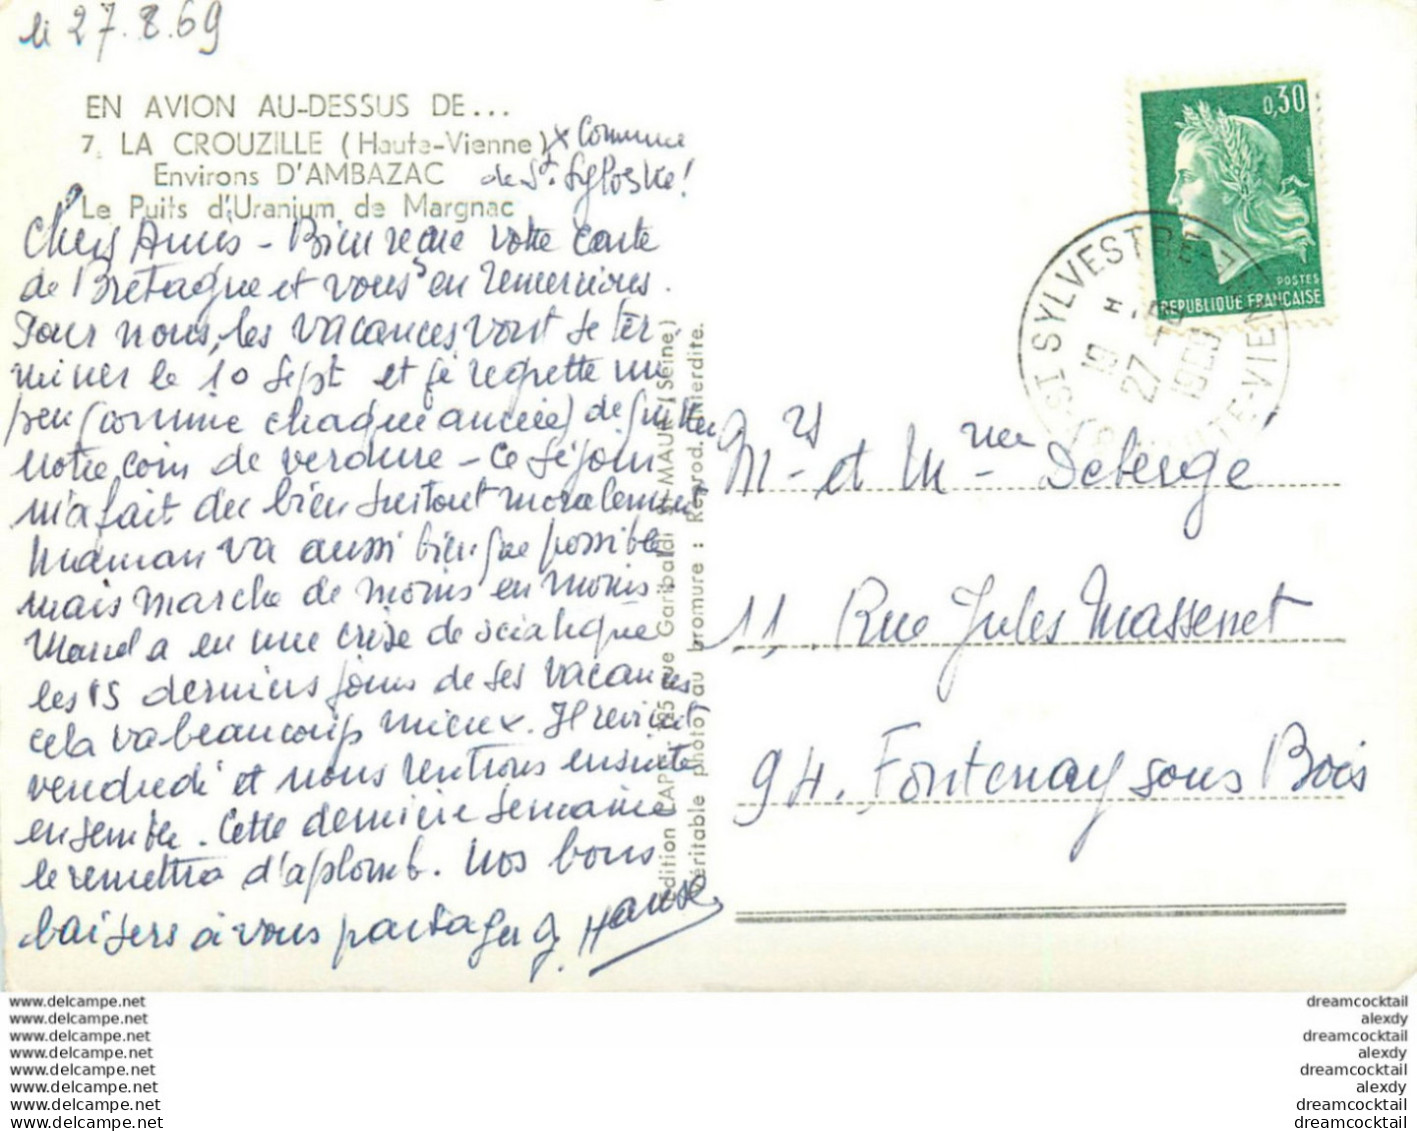 le 27.8.69
EN AVION AU-DESSUS DE...
7. LA CROUZILLE (Haute-Vienne) x Commune
Environs D'AMBAZAC de St. Sylvestre!
Le Puits d'Uranium de Margnac
Chers Amis - Bien reçue votre carte
de Bretagne et vous en remercions.
Pour nous, les vacances vont se ter-
miner le 10 Sept et je regrette un
peu (comme chaque année) de quitter
notre coin de verdure - Ce séjour
m'a fait du bien surtout moralement
Maman va aussi bien que possible
mais marche de moins en moins.
Marcel a eu une crise de sciatique
les 15 derniers jours de ses vacances
cela va beaucoup mieux. Il revient
vendredi et nous rentrons ensuite
ensemble. Cette dernière semaine
le remettra d'aplomb. Nos bons
baisers à vous partager
Edition LAPIE, Rue Garibaldi St-MAUR (Seine)
Véritable photo au bromure : Reprod. interdite.
0,30
POSTES
REPUBLIQUE FRANÇAISE
ST SYLVESTRE
27
1969
HAUTE-VIENNE
Mrs et Mme Deberge
11, Rue Jules Massenet
94. Fontenay sous Bois
www.delcampe.net
www.delcampe.net
www.delcampe.net
www.delcampe.net
www.delcampe.net
www.delcampe.net
www.delcampe.net
www.delcampe.net
dreamcocktail
alexdy
dreamcocktail
alexdy
dreamcocktail
alexdy
dreamcocktail
dreamcocktail